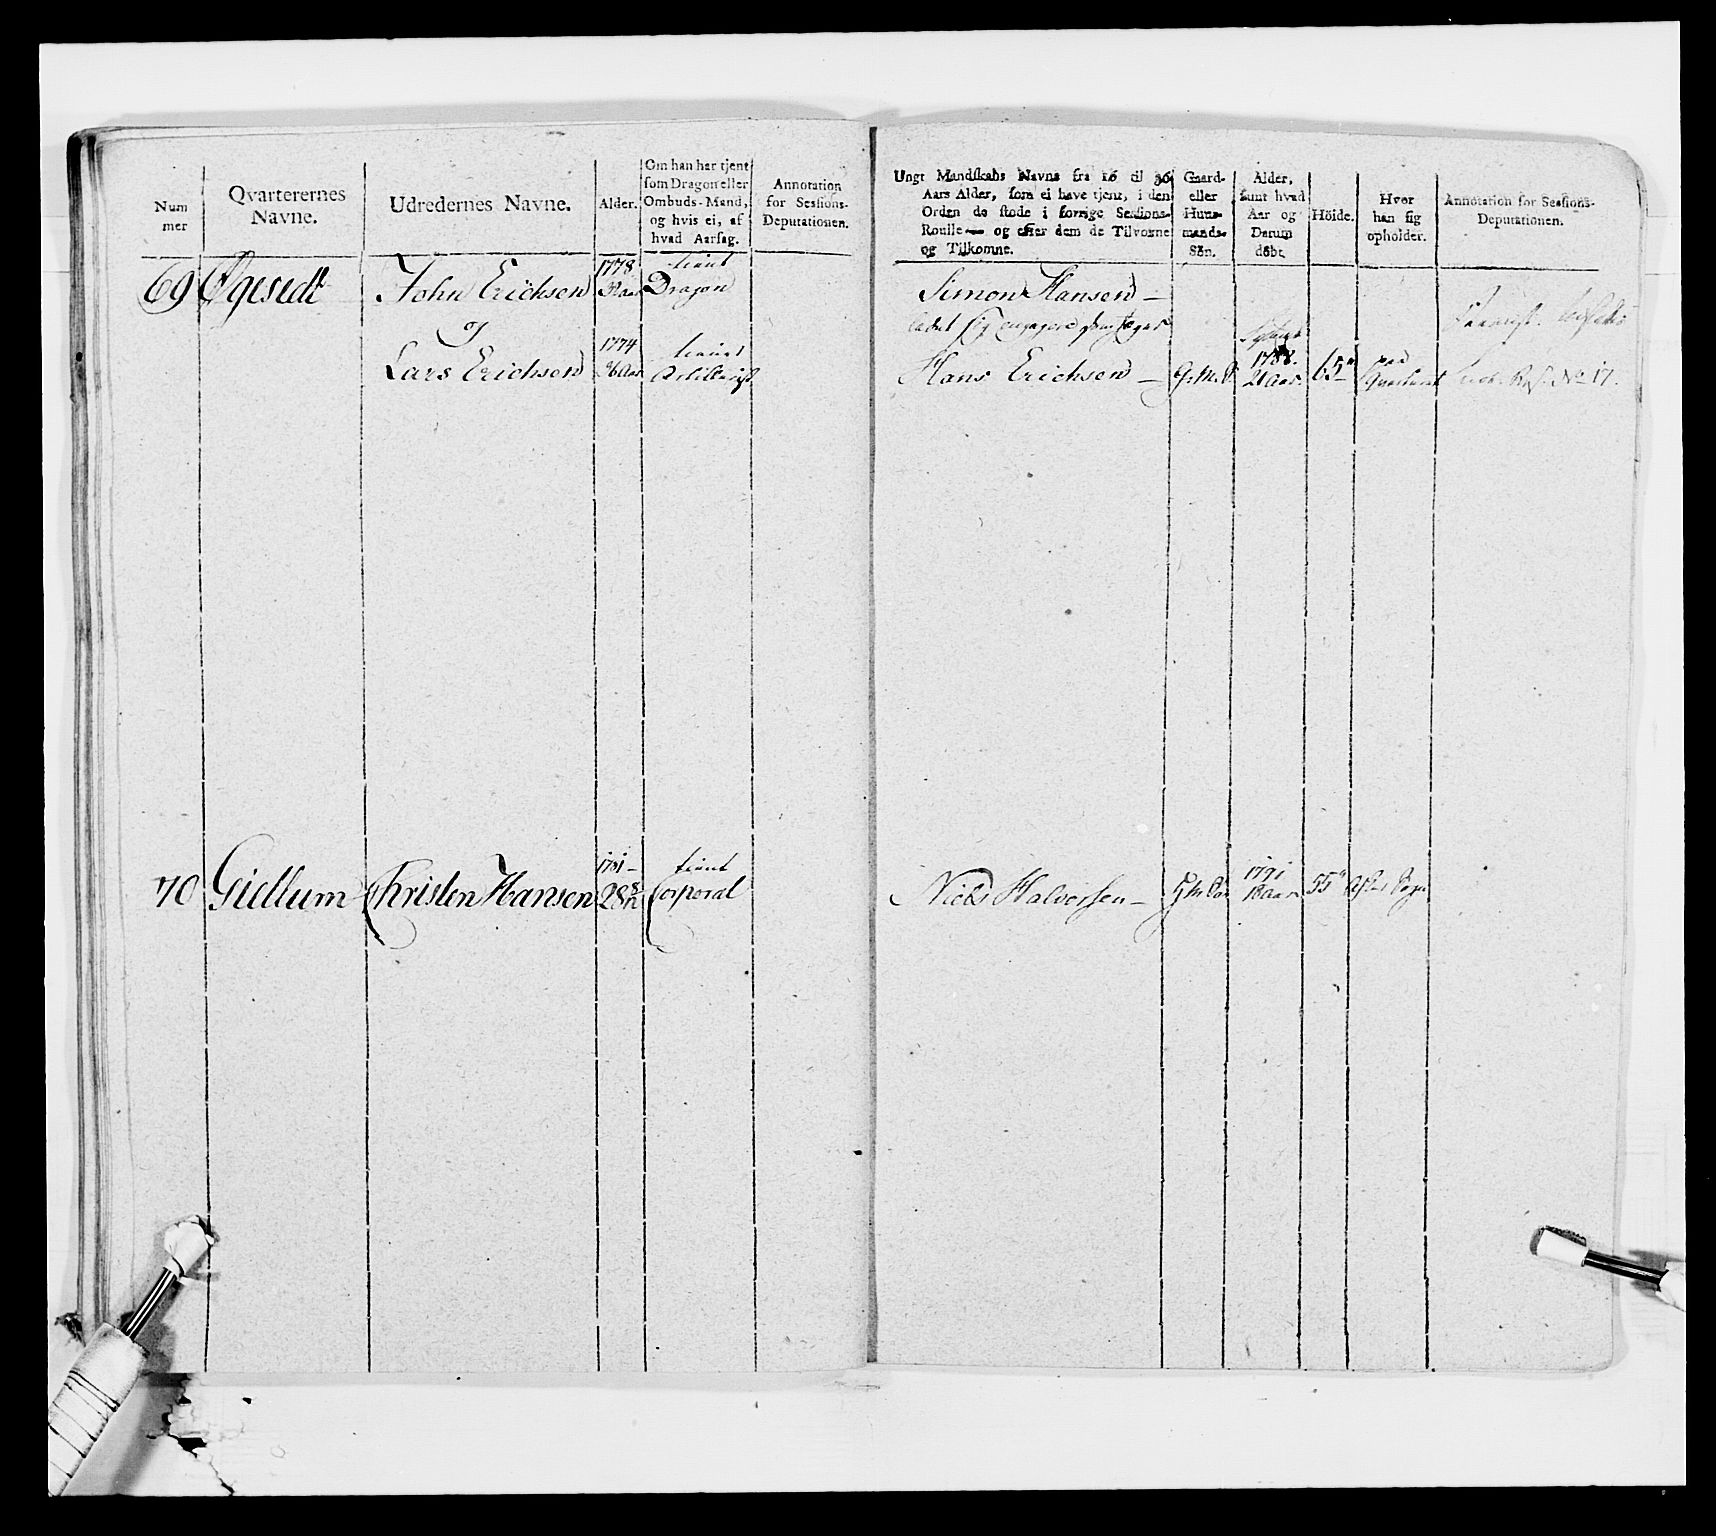 Num
mer
Qvarterernes
Navne.
Udredernes Navne.
Alder.
Om han har tjent
som Dragon eller
Ombuds-Mand,
og hvis ei, af
hvad Aarsag.
Annotation
for Sessions-
Deputationen.
69 Øgesedt John Erichsen 1778 tient Dragon
og
Lars Erichsen 1774 tient Artillerist
70 Gidlum Christen Hansen 1781 28 tient Corporal
Ungt Mandskabs Navne fra 16 til 36
Aars Alder, som ei have tjent, i den
Orden de stode i forrige Sessions-
Roulle — og efter dem de Tilvoxne
og Tilkomne.
Gaard-
eller
Huus-
mands-
Søn.
Alder,
samt hvad
Aar og
Datum
døbt.
Höide.
Hvor
han sig
opholder.
Annotation for Sessions-
Deputationen.
Simon Hansen —
ladet sig engagere
Hans Erichsen — G. M. S. 1788. 21 Aar. 65" paa Qvarteret No 17.
Niels Halvorsen — 1791 18 Aar 55"